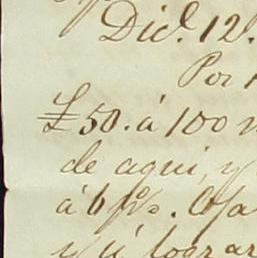 Dic.e 12.
Por
£50. á 100
de aqui, y
á 6 p%.
y ú lograr